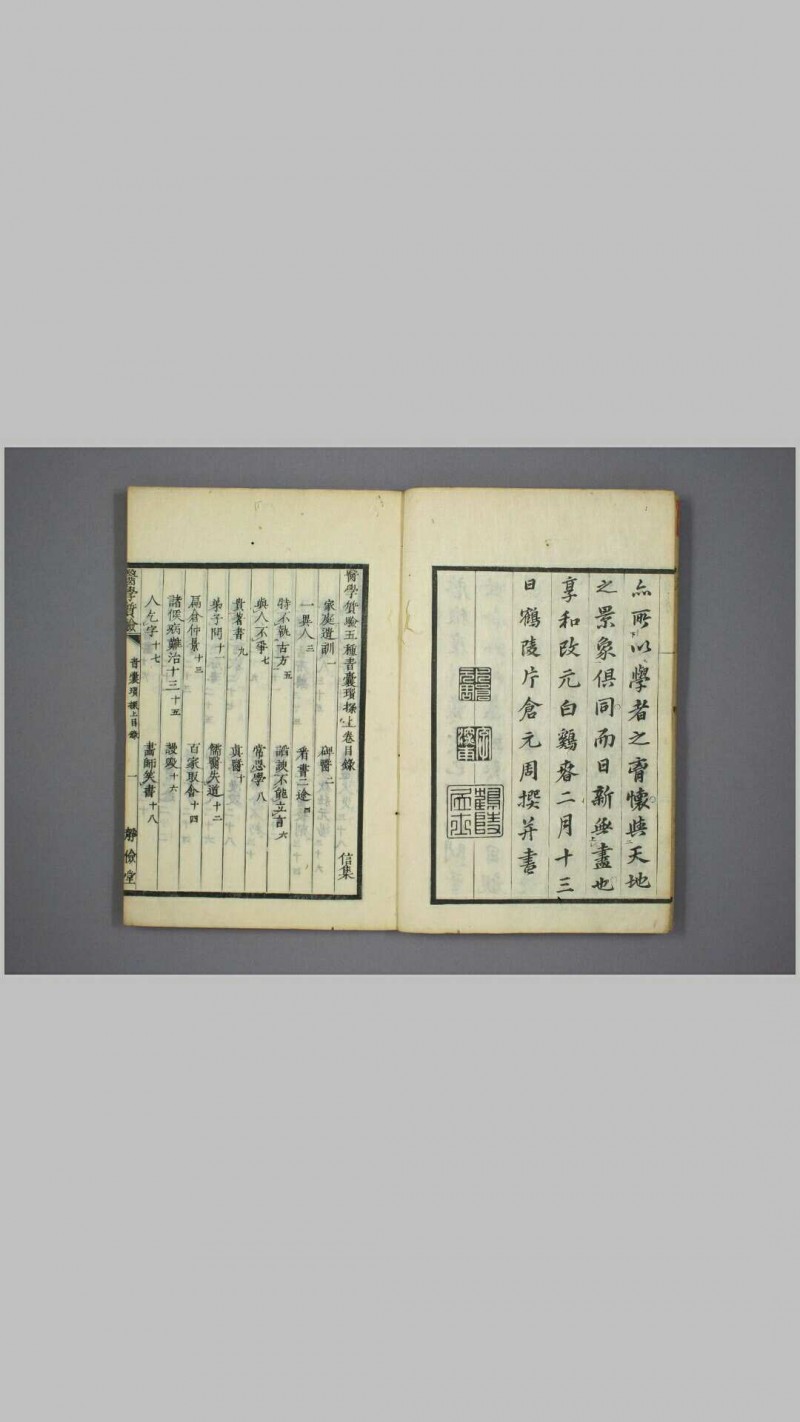 亦所以學者之胷懷與天地
之景象俱同而日新無盡也
享和改元白雞春二月十三
日鶴陵片倉元周撰并書
醫學質驗五種青囊瑣探上卷目錄 信集
家庭遺訓一 碑醫二
一異人三 看書二途四
特不執古方五 諂諛不能立言六
與人不爭七 常思學八
貴著書九 真醫十
弟子問十一 儒醫失道十二
扁倉仲景十三 百家取舍十四
諸侯病難治十三十五 謾毀十六
人乞字十七 畵師笑書十八
醫學質驗 青囊瑣探上目錄 一 靜儉堂